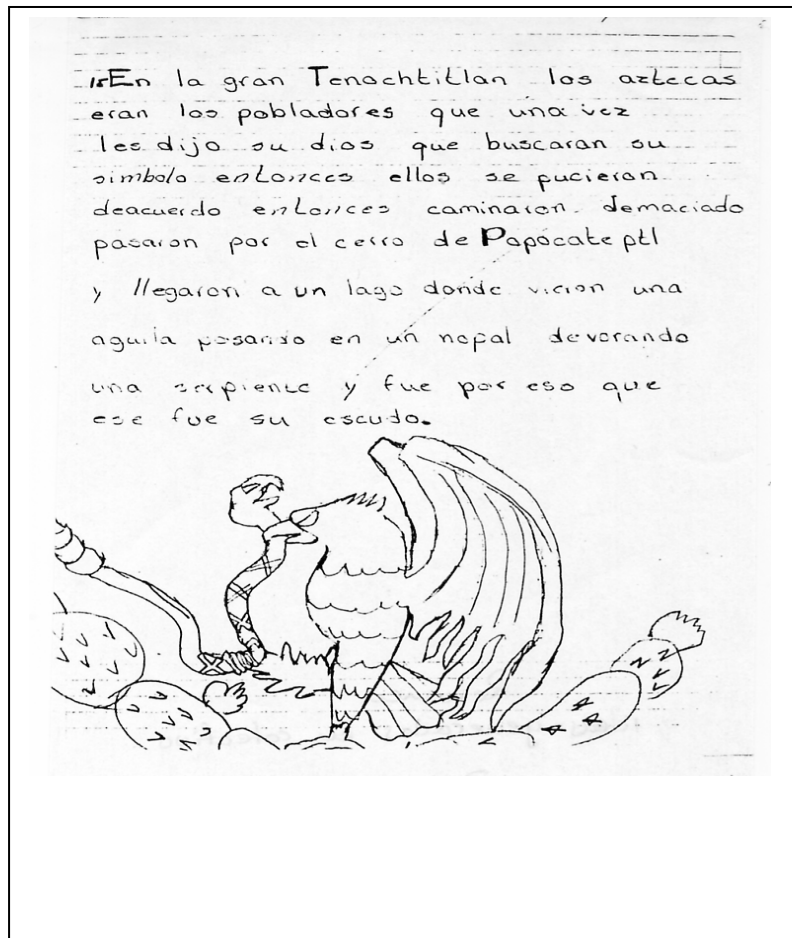 15 En la gran Tenochtitlan los aztecas
eran los pobladores que una vez
les dijo su dios que buscaran su
simbolo entonces ellos se pucieron
deacuerdo entonces caminaron demaciado
pasaron por el cerro de Popocateptl
y llegaron a un lago donde vieron una
aguila posando en un nopal devorando
una serpiente y fue por eso que
ese fue su escudo.